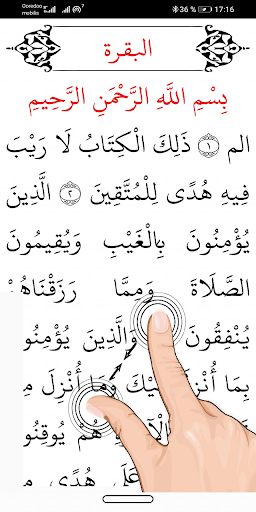 Ooredoo
mobilis
36 % 17:16
البقرة
بِسْمِ اللَّهِ الرَّحْمَنِ الرَّحِيمِ
الم ١ ذَلِكَ الْكِتَابُ لَا رَيْبَ
فِيهِ هُدًى لِلْمُتَّقِينَ ٢ الَّذِينَ
يُؤْمِنُونَ بِالْغَيْبِ وَيُقِيمُونَ
الصَّلَاةَ وَمِمَّا رَزَقْنَاهُ
يُنْفِقُونَ وَالَّذِينَ يُؤْ
بِمَا أُنْزِلَ يْكَ وَمَا أُنْزِلَ مِ
الْآ هُمْ يُوقِنُو
عَلَى هُدًى مِ